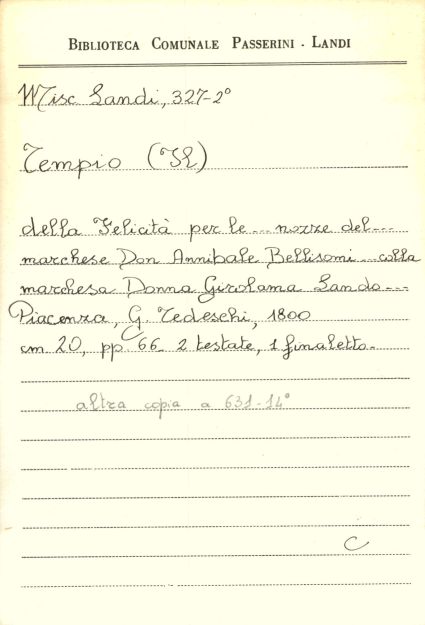 BIBLIOTECA COMUNALE PASSERINI - LANDI
Misc Landi, 327-2°
Tempio (Il)
della Felicità per le ... nozze del ...
marchese Don Annibale Bellisomi ... colla
marchesa Donna Girolama Lando ...
Piacenza, G. Tedeschi, 1800
cm 20, pp. 66 2 testate, 1 finaletto.
altra copia a 631-14°
C